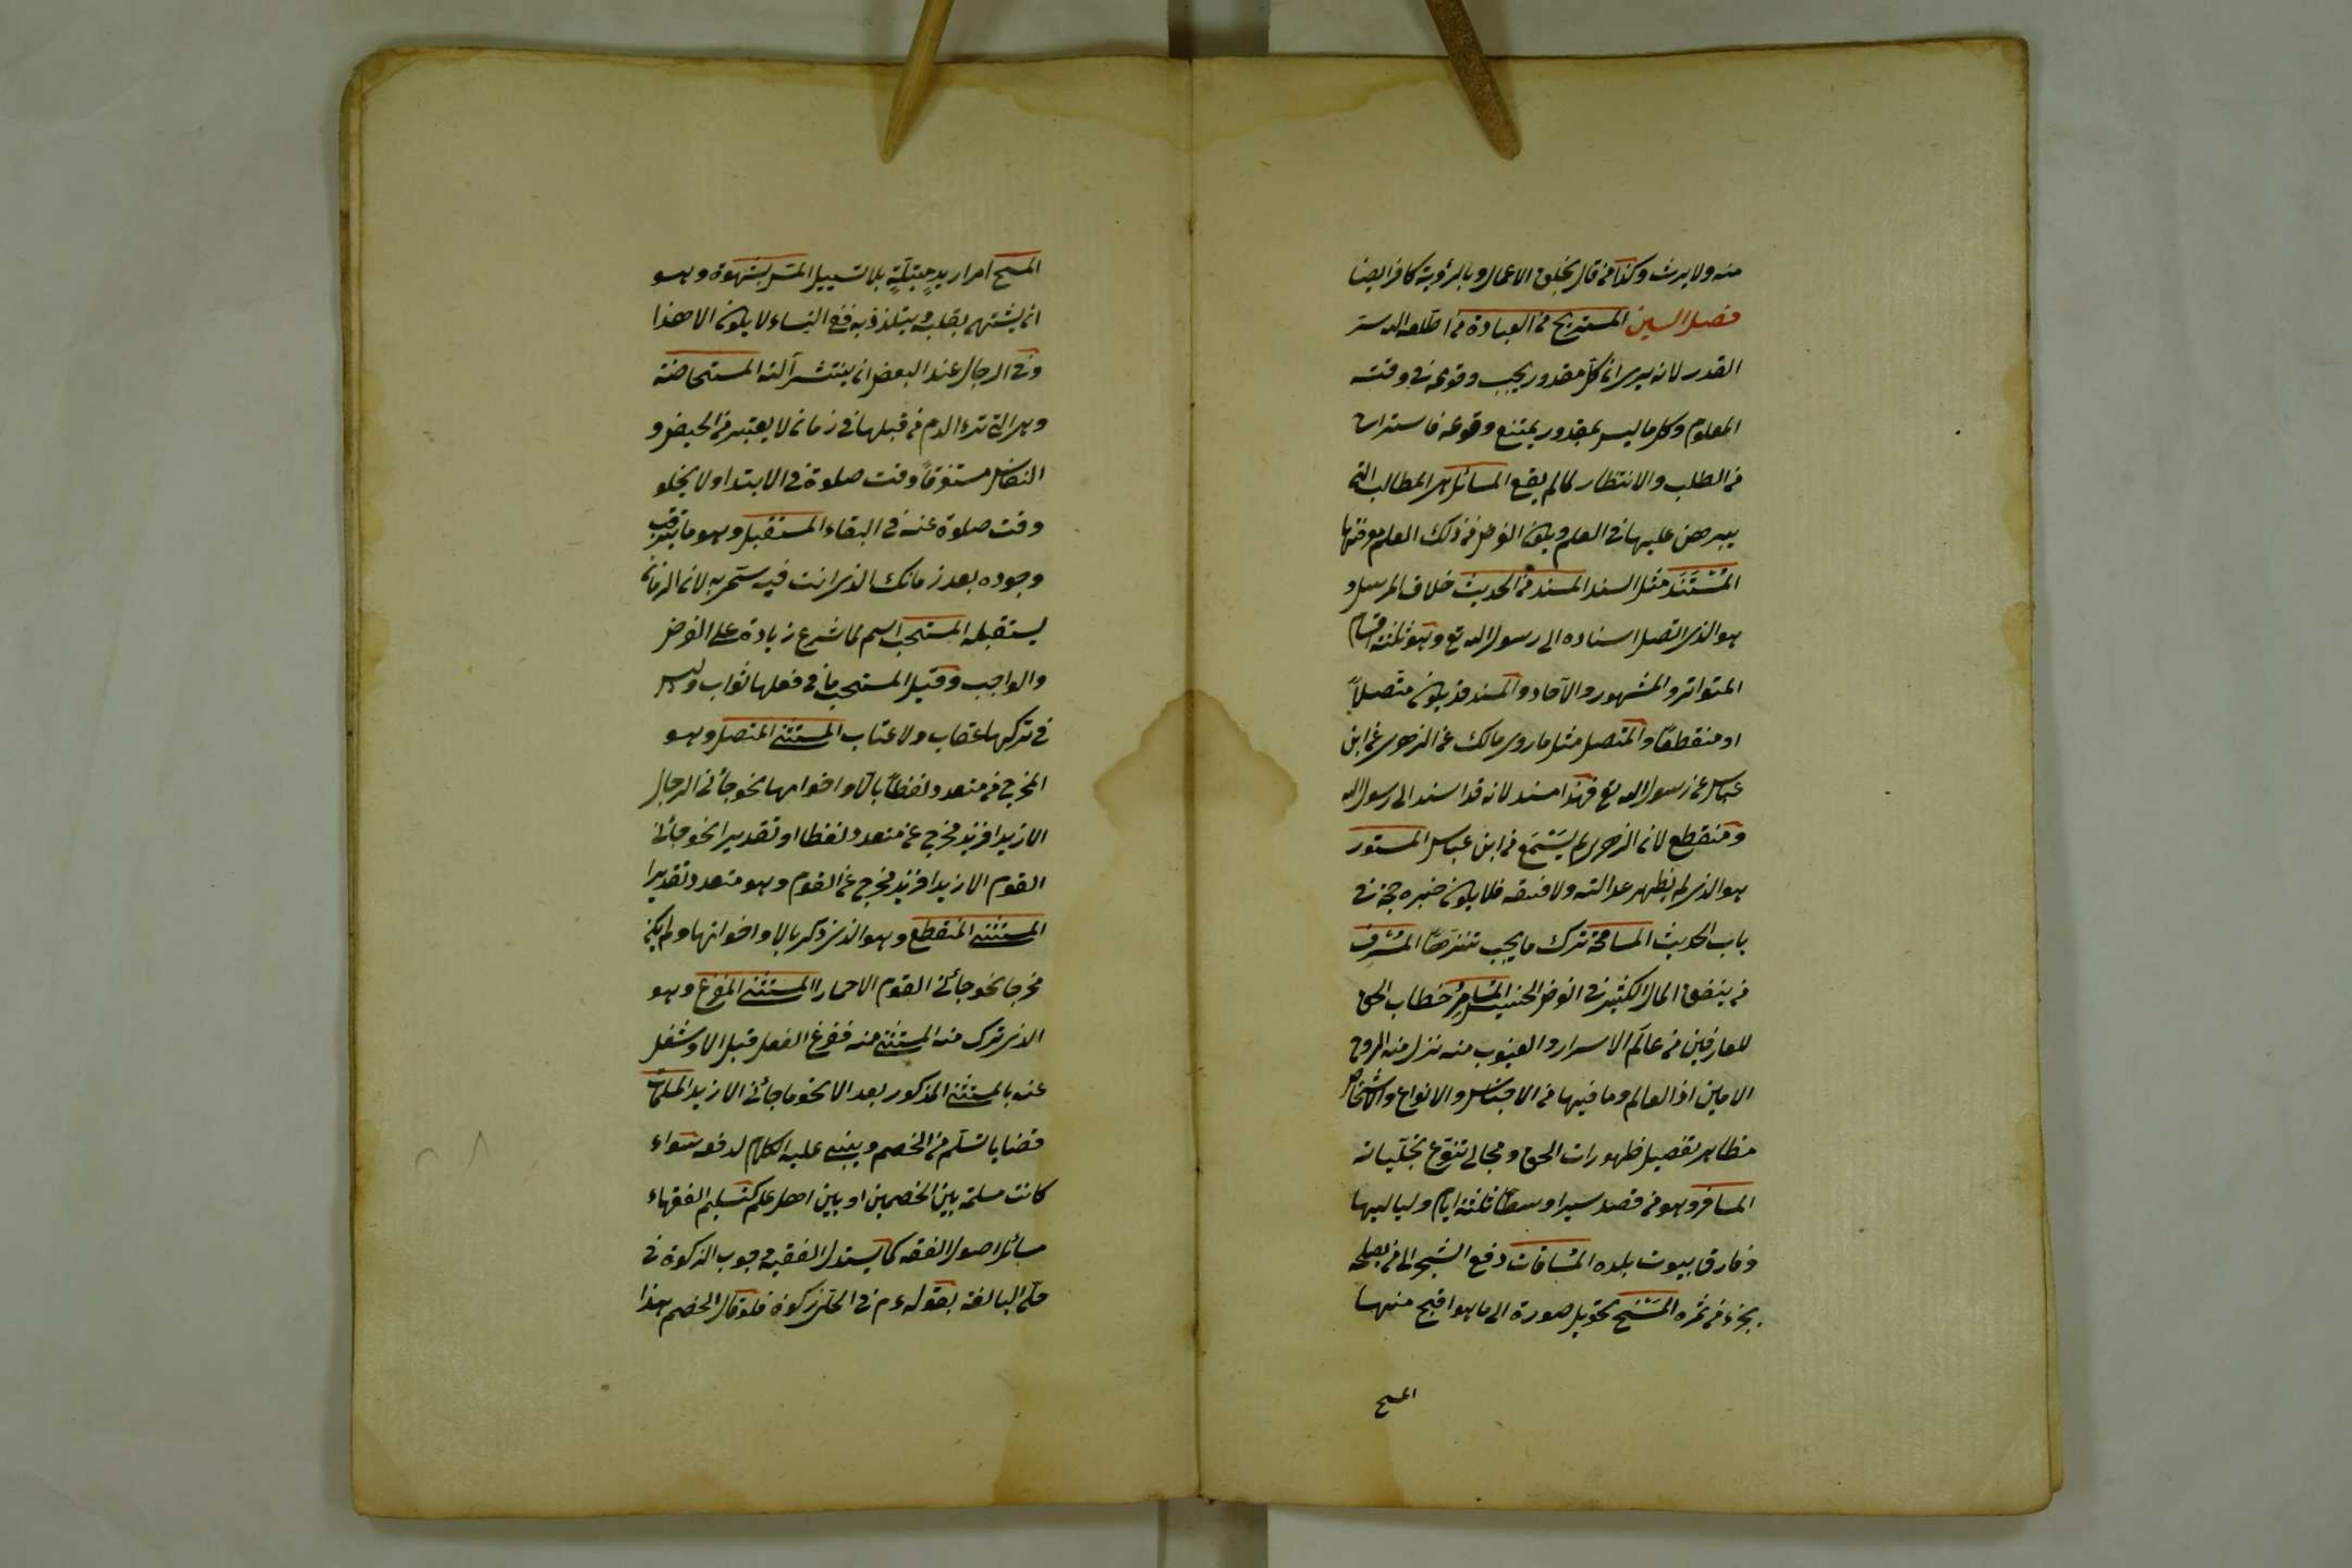 منه ولا يرث وكذا من قال بخلق الاعمال وبالرؤية كافر ايضا
فصل السين المستريح من العبادة من اطلعه الله سر
القدر لانه يرى ان كل مقدور يجب وقوعه في وقته
المعلوم وكل ما ليس بمقدور يمتنع وقوعه فاستراح
من الطلب والانتظار لما لم يقع المسائل هي المطالب التى
يبرهن عليها في العلم ويكون الغرض من ذلك العلم معرفتها
المُسْتَنَد مثل السند المسند من الحديث خلاف المرسل و
هو الذى اتصل اسناده الى رسول الله تع وهو ثلثة اقسام
المتواتر والمشهور والآحاد والمسند قد يكون متصلاً
او منقطعًا والمتصل مثل ما روى مالك عن الزهرى عن ابن
عباس عن رسول الله تع فهذا مسند لانه قد اسند الى رسول الله
ومنقطع لان الزهرى لم يَسْمَع من ابن عباس المستور
هو الذى لم يظهر عدالته ولا فسقه فلا يكون خبره حجة في
باب الحديث المسامحة ترك ما يجب تنزهًا المُسْرِف
من ينفق المال الكثير في الغرض الخسيس المُسَامِرُ خطاب الحق
للعارفين من عالَم الاسرار والغيوب منه نزل منه الروح
الامين اذ العالم وما فيها من الاجناس والانواع والاشخاص
مظاهر تفصيل ظهورات الحق ومجالى تنوّع تجلّياته
المسافر وهو من قصد سيرا وسطًا ثلثة ايام ولياليها
وفارق بيوت بلده المُسَاقات دفع الشجر الى من يصلحه
بجزء من ثمره المَسْخ تحويل صورة الى ما هو اقبح منها
المسح
المسح امرار يدٍ مبتلّةٍ بلا تسييل المسّ بشهوة وهو
ان يشتهى بقلبه ويتلذذ به ففى النساء لا يكون الا هذا
وفي الرجال عند البعض ان ينتشر آلته المستحاضة
وهى التى ترى الدم من قبلها في زمان لا يعتبر من الحيض و
النفاس مستغرقاً وقت صلوة في الابتدا ولا يخلو
وقت صلوة عنه في البقاء المستقبل وهو ما يترقب
وجوده بعد زمانك الذى انت فيه سمى به لان الزمان
يستقبله المستحب اسم لما شرع زيادة على الفرض
والواجب وقيل المستحب ما في فعلها ثواب وليس
في تركها عقاب ولا عتاب المستثنى المتصل وهو
المخرج من متعدد لفظاً بالّا واخواتها نحو جأنى الرجال
الا زيدا فزيد مخرج عن متعدد لفظا او تقديرا نحو جأنى
القوم الا زيدا فزيد مخرج عن القوم وهو متعدد تقديرا
المستثنى المنقطع وهو الذى ذكر بالا واخواتها ولم يكن
مخرجا نحو جأنى القوم الا حمارا المستثنى المفرغ وهو
الذى ترك منه المستثنى منه ففرغ الفعل قبل الا وشغل
عنه بالمستثنى المذكور بعد الا نحو ما جأنى الا زيد المسلمات
قضايا تسلّم من الخصم ويبنى عليه الكلام لدفعه سواء
كانت مسلمة بين الخصمين او بين اهل علم كتسليم الفقهاء
مسائل اصول الفقه كما يستدل الفقيه وجوب الزكوة في
حلّى البالغة بقوله ءم في الحلى زكوة فلو قال الخصم هذا